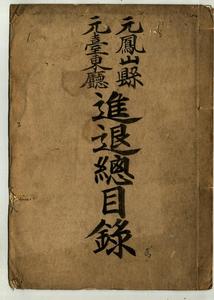 元鳳山縣
元臺東廳
進退總目錄